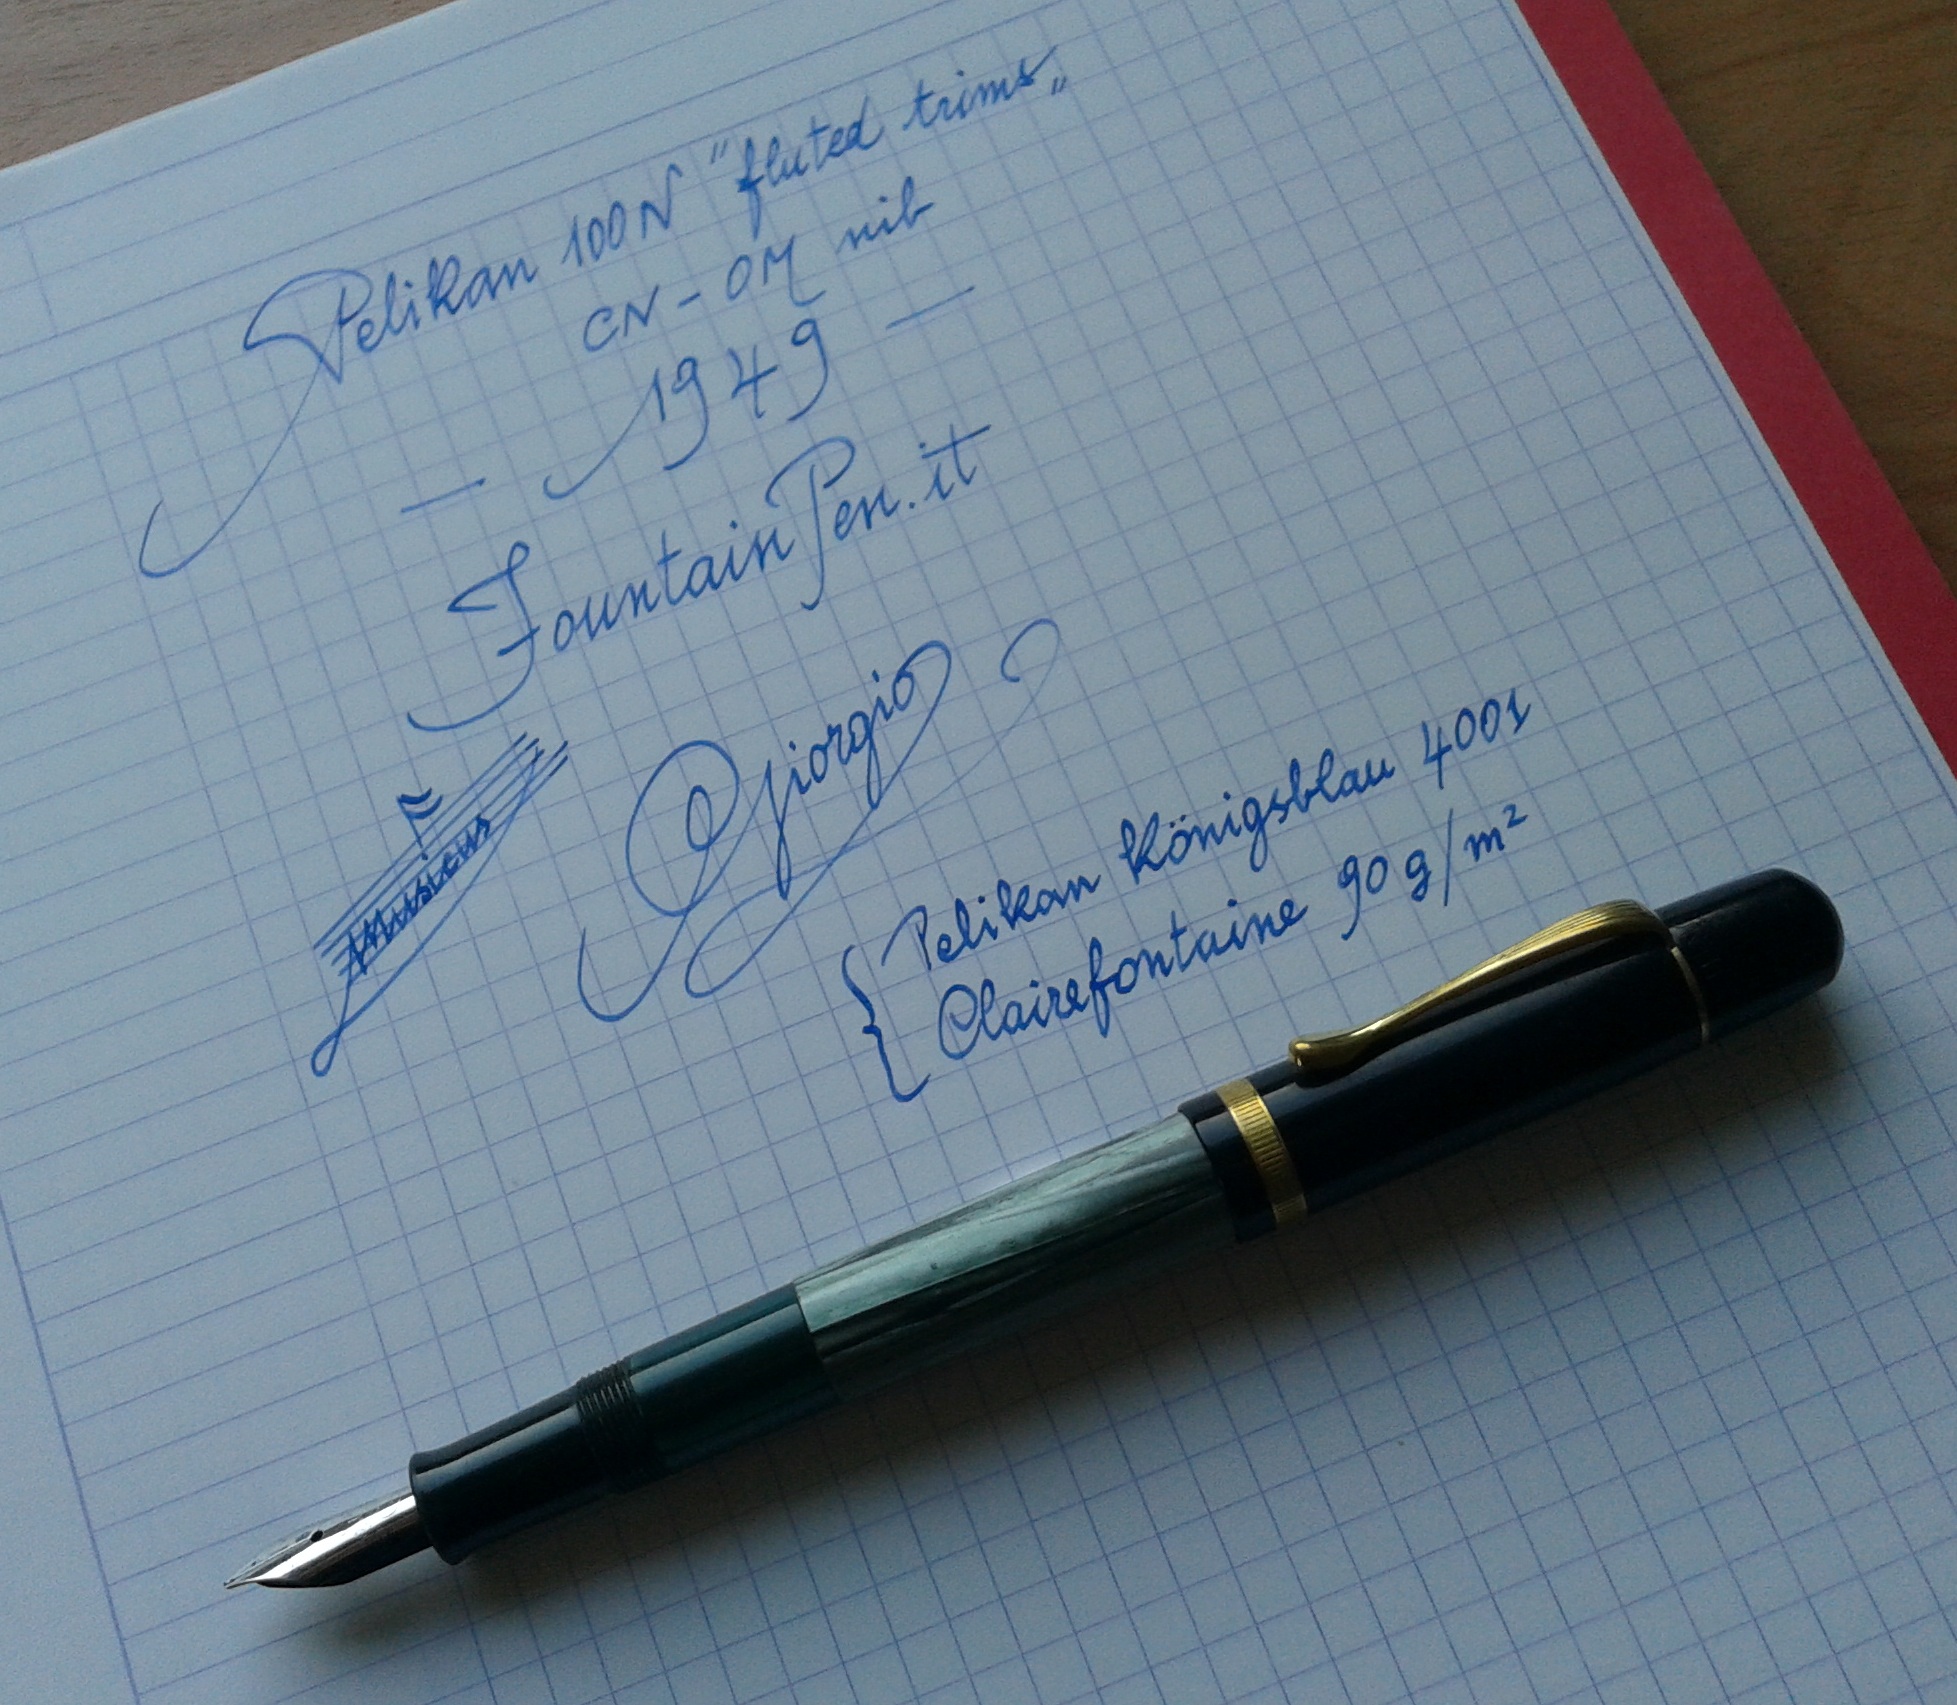 Pelikan 100N "fluted trims„
CN - OM nib
— 1949 —
FountainPen.it
Giorgio
Musicus
{ Pelikan Königsblau 4001
Clairefontaine 90 g/m²